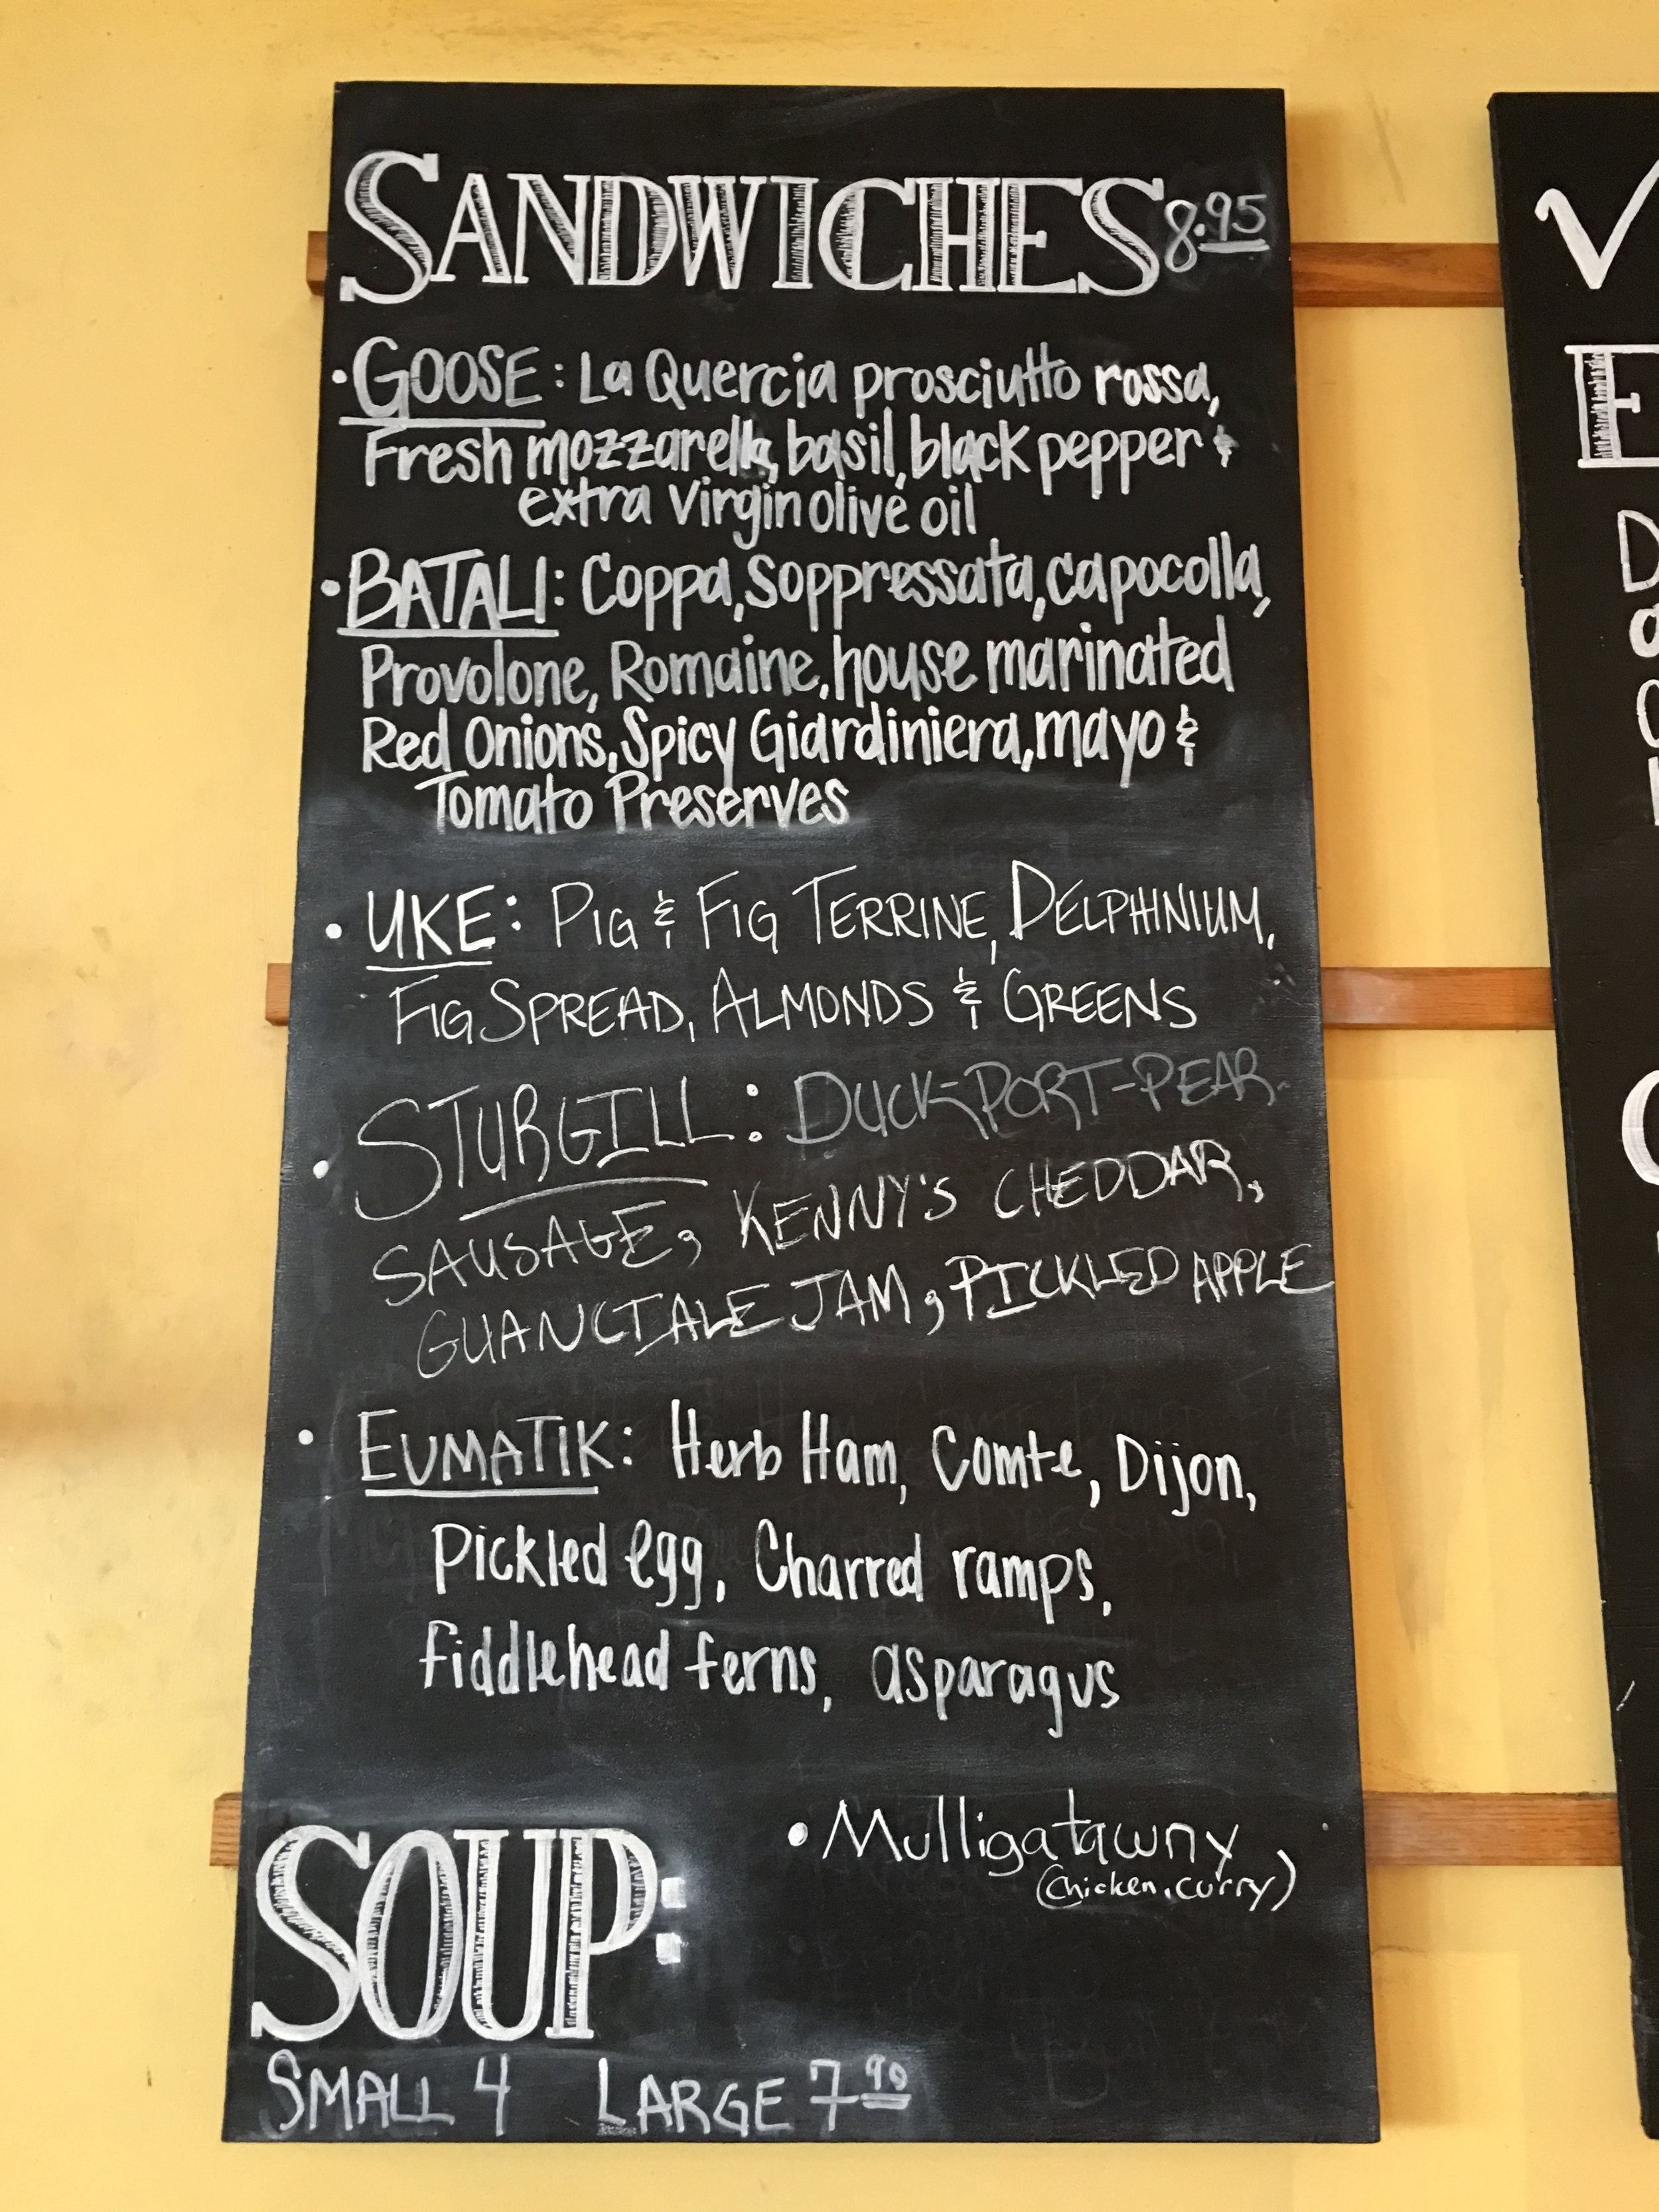 SANDWICHES 8.95
• GOOSE: La Quercia prosciutto rossa,
Fresh mozzarella, basil, black pepper &
extra virgin olive oil
• BATALI: Coppa, Soppressata, capocolla,
Provolone, Romaine, house marinated
Red Onions, Spicy Giardiniera, mayo &
Tomato Preserves
• UKE: PIG & FIG TERRINE, DELPHINIUM,
FIG SPREAD, ALMONDS & GREENS
• STURGILL: DUCK-PORT-PEAR-
SAUSAGE, KENNY'S CHEDDAR,
GUANCIALE JAM, PICKLED APPLE
• EUMATIK: Herb Ham, Comte, Dijon,
Pickled egg, Charred ramps,
fiddlehead ferns, asparagus
SOUP:
• Mulligatawny
(chicken, curry)
SMALL 4 LARGE 7.90